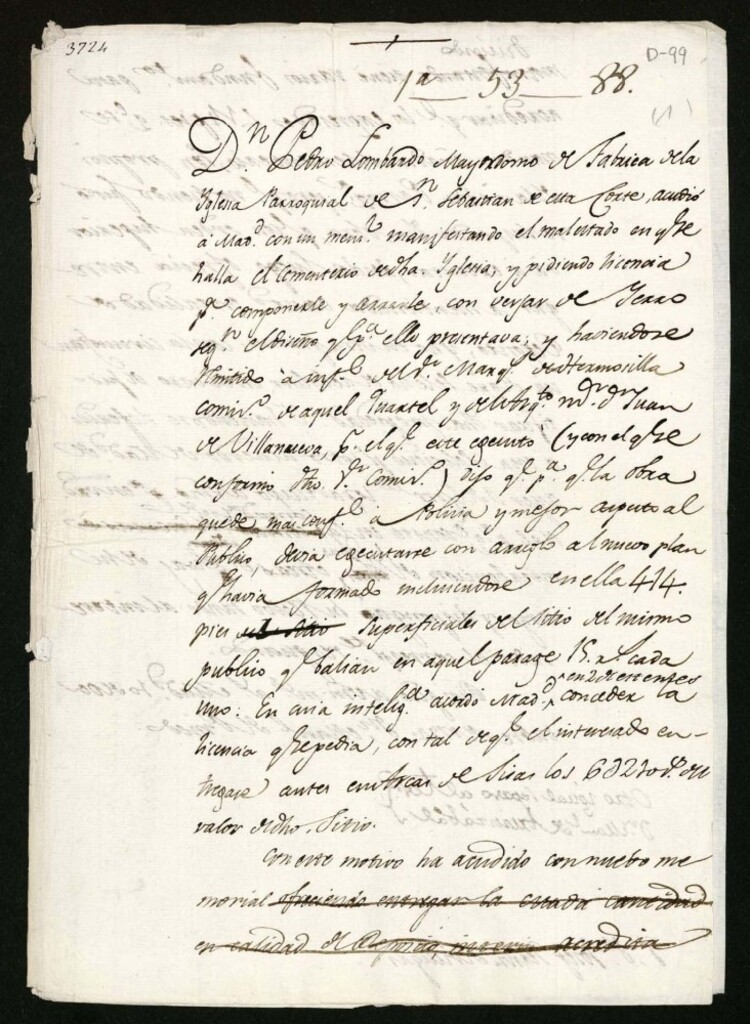 3724
D-99
1ª 53 88.
Dn. Pedro Lombardo Mayordomo de Fabrica de la
Yglesia Parroquial de Sn. Sebastian de esta Corte, acudió
à Madd. con un meml. manifestando el mal estado en qe. se
halla el Cementerio de dha. Yglesia, y pidiendo licencia
pa. componerle y cerrarle, con verjas de Yerro
segn. el diseño qe. pa. ello presentava; y haviendose
remitido à infe. del Sr. Marqs. de Hermosilla
comiso. de aquel Quartel y del Arqto. mr. dn. Juan
de Villanueva, pr. el qe. este egecutó (y con el qe. se
conformó dho. Sr. Comiso.) dijo qe. pa. qe. la obra
quede mas confe. à Policia y mejor aspecto al
Publico, devia egecutarse con arreglo al nuevo plan
qe. havia formado incluiendose en ella 414.
pies del sitio superficiales del sitio del mismo
publico qe. balian en aquel parage 15. rs. cada
uno: En cuia inteliga. acordó Madd. en 20 de este mes conceder la
licencia qe. se pedia, con tal de qe. el interesado en-
tregase antes en Arcas de Sisas los 6210 rs. del
valor de dho. Sitio.
Con este motivo ha acudido con nuebo me
morial ofreciendo entregar la citada cantidad
en calidad de deposito interin acredita